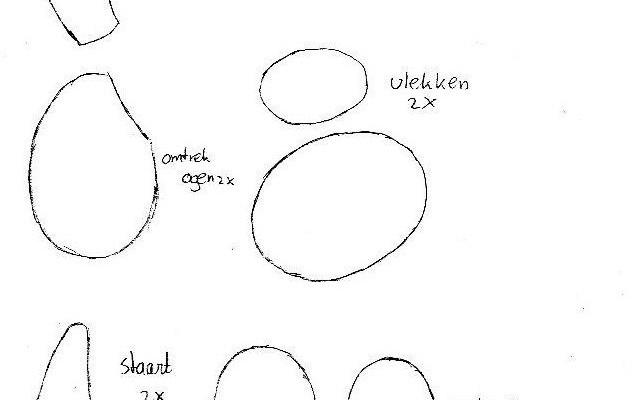 vlekken
2x
omtrek
ogen 2x
staart
2x